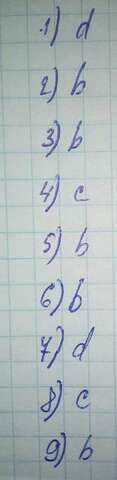 1) d
2) b
3) b
4) c
5) b
6) b
7) d
8) c
9) b